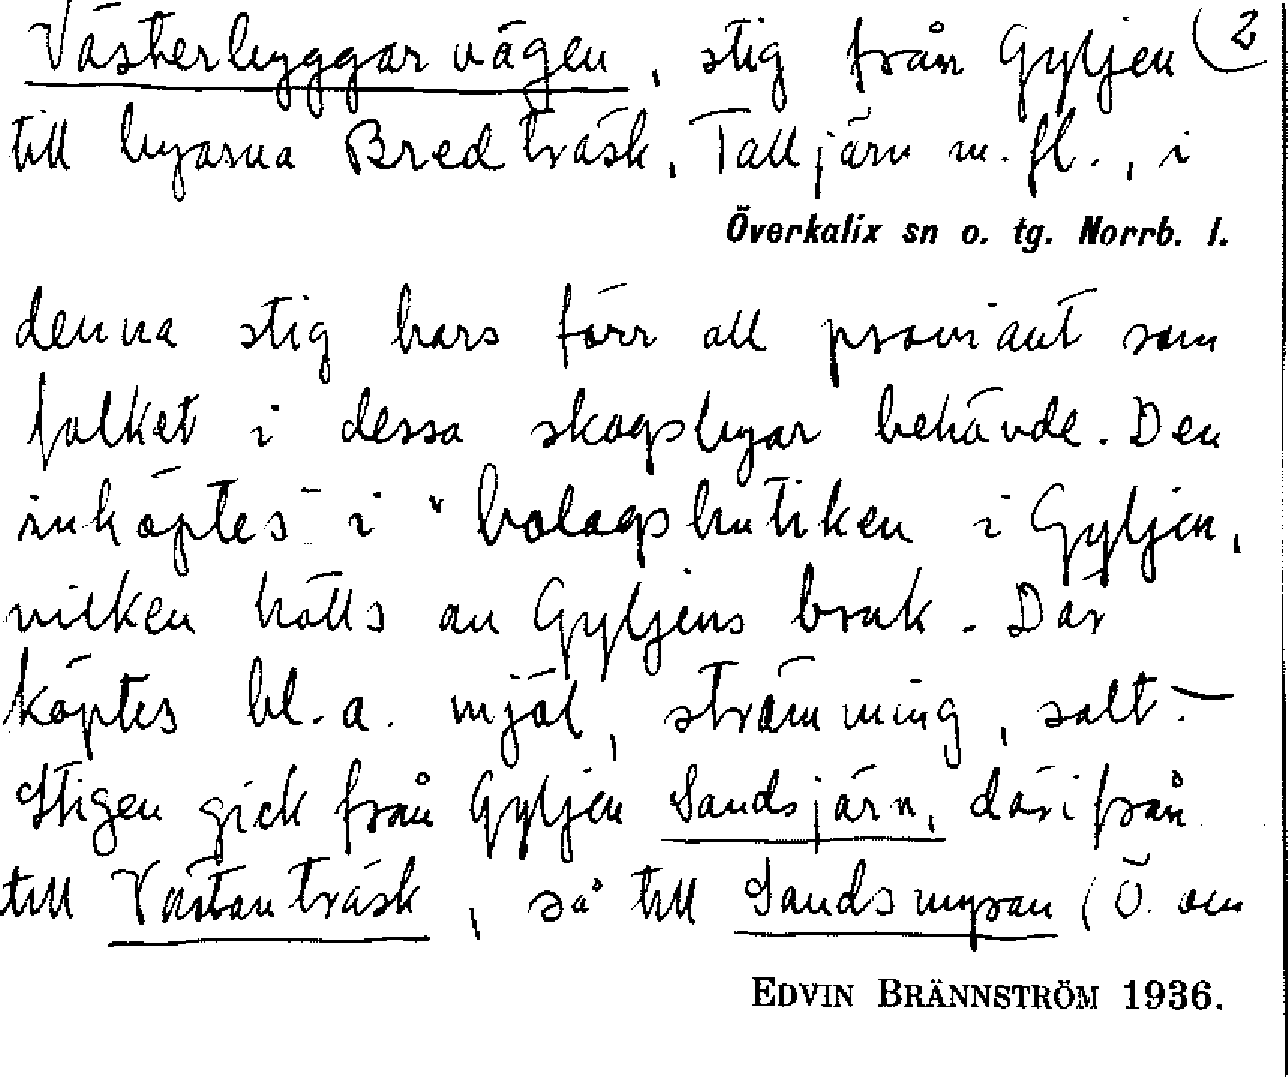 Västerbyggarvägen, stig från Gyljen (2
till byarna Bredträsk, Talljärn m.fl., i
Överkalix sn o. tg. Norrb. l.
denna stig bars förr all proviant som
folket i dessa skogsbyar behövde. Den
inköptes i "bolagsbutiken i Gyljen,
vilken hölls av Gyljens bruk. Där
köptes bl.a. mjöl, strömming, salt. —
Stigen gick från Gyljen Sandsjärn, därifrån
till Västanträsk, så till Sandsmyran (Ö. om
EDVIN BRÄNNSTRÖM 1936.